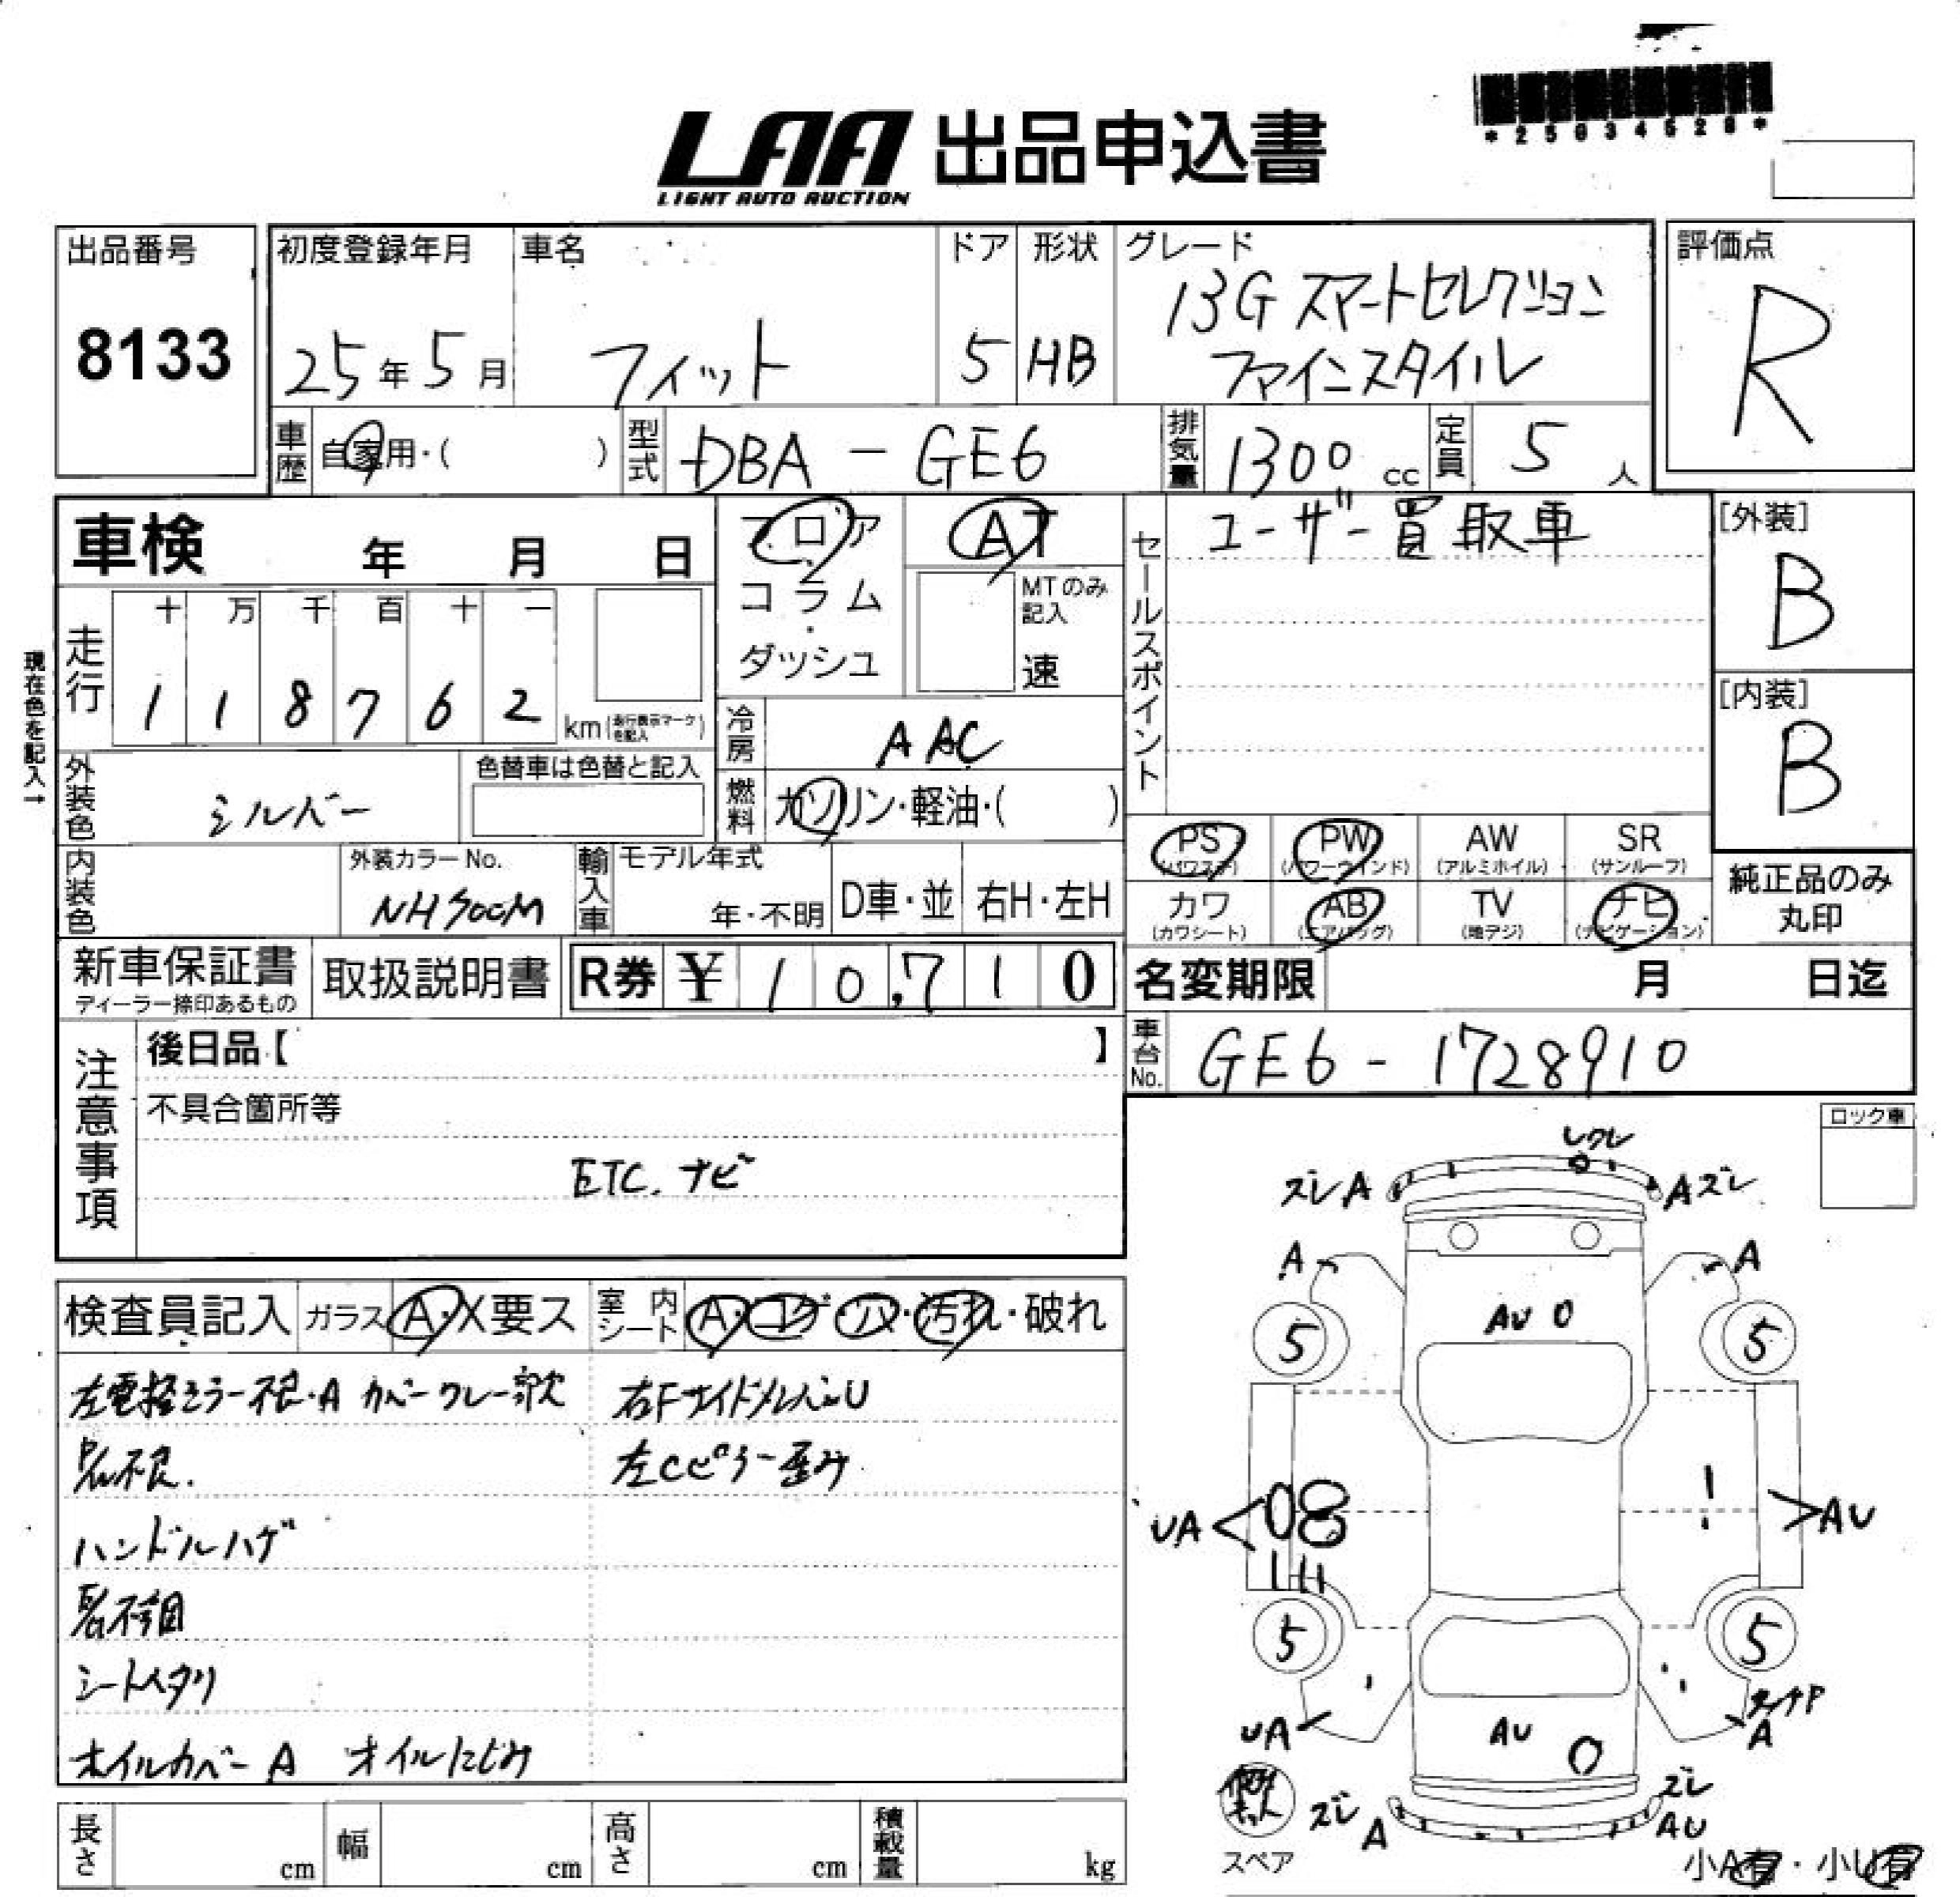 *25034528*
LAA 出品申込書
LIGHT AUTO AUCTION
出品番号
8133
初度登録年月
25年5月
車名
フィット
ドア
5
形状
HB
グレード
13G スマートセレクション
ファインスタイル
評価点
R
車歴
自家用・( )
型式
DBA - GE6
排気量
1300 cc
定員
5 人
車検 年 月 日
フロア
コラム
・
ダッシュ
AT
MTのみ
記入
速
セールスポイント
ユーザー買取車
[外装]
B
[内装]
B
現在色を記入→
走行
十 万 千 百 十 一
1 1 8 7 6 2 km(走行表示マークを記入)
冷房
AAC
外装色
シルバー
色替車は色替と記入
燃料
ガソリン・軽油・( )
PS
(パワステ)
PW
(パワーウインド)
AW
(アルミホイル)
SR
(サンルーフ)
カワ
(カワシート)
AB
(エアバッグ)
TV
(地デジ)
ナビ
(ナビゲーション)
純正品のみ
丸印
内装色
外装カラーNo.
NH700M
輸入車
モデル年式
年・不明
D車・並
右H・左H
新車保証書
ディーラー捺印あるもの
取扱説明書
R券 ¥ 10,710
名変期限 月 日迄
車台No.
GE6 - 1728910
注意事項
後日品【 】
不具合箇所等
ETC. ナビ
ロック車
検査員記入
ガラス A・X要ス
室内シート A・コゲ・穴・汚れ・破れ
左電格ミラー不良・A カバークレー欠
右FサイドメンバーU
左Cピラー歪み
ハンドルハゲ
シートヘタリ
オイルカバーA オイルにじみ
ズレ A
A ズレ
A
A
AU
5
5
UA
AU
5
5
UA
AU
A
ズレ
A
ズレ
AU
スペア
小A有・小U有
長さ cm
幅 cm
高さ cm
積載量 kg